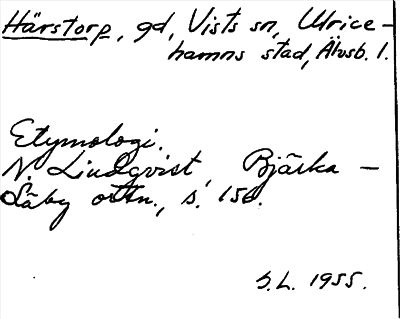 Härstorp, gd, Vists sn, Ulrice-
hamns stad, Älvsb. l.
Etymologi.
N. Lindqvist, Bjärka-
Säby ortn., s. 156.
S.L. 1955.